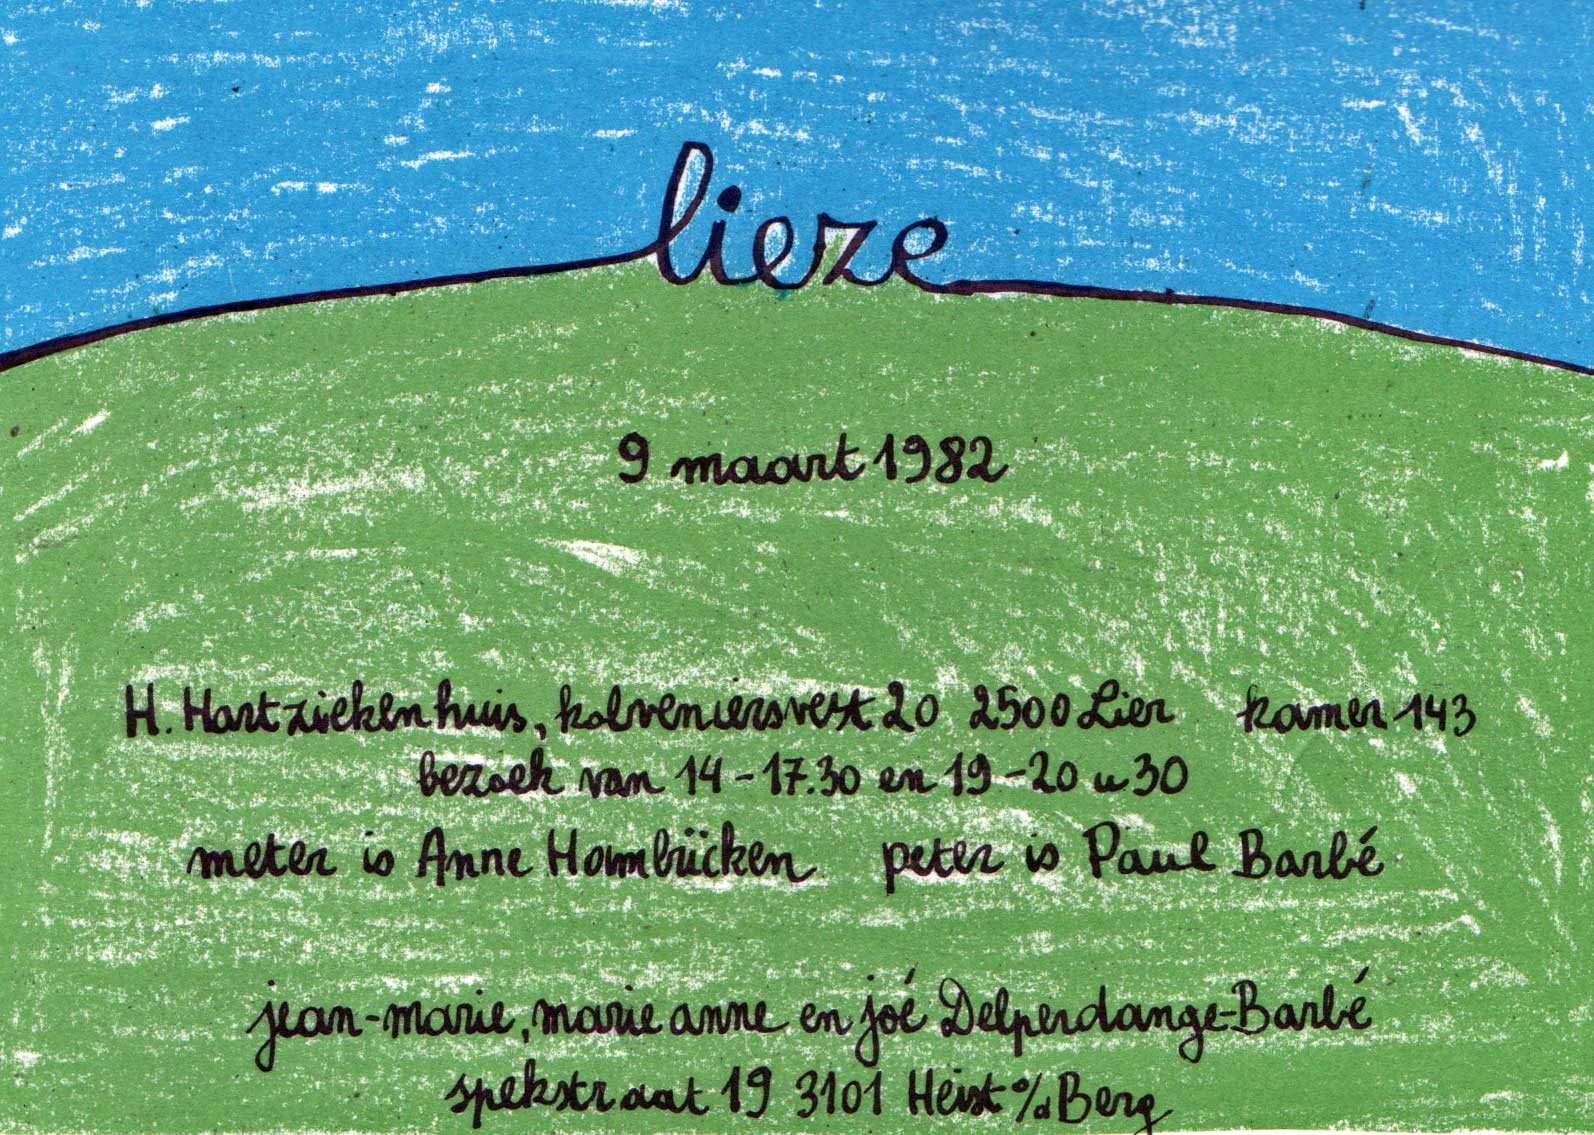 lieze
9 maart 1982
H. Hartziekenhuis, kolveniersvest 20 2500 Lier kamer 143
bezoek van 14-17.30 en 19-20 u 30
meter is Anne Hombrücken peter is Paul Barbé
jean-marie, marie anne en joé Delperdange-Barbé
spekstraat 19 3101 Heist o/d Berg